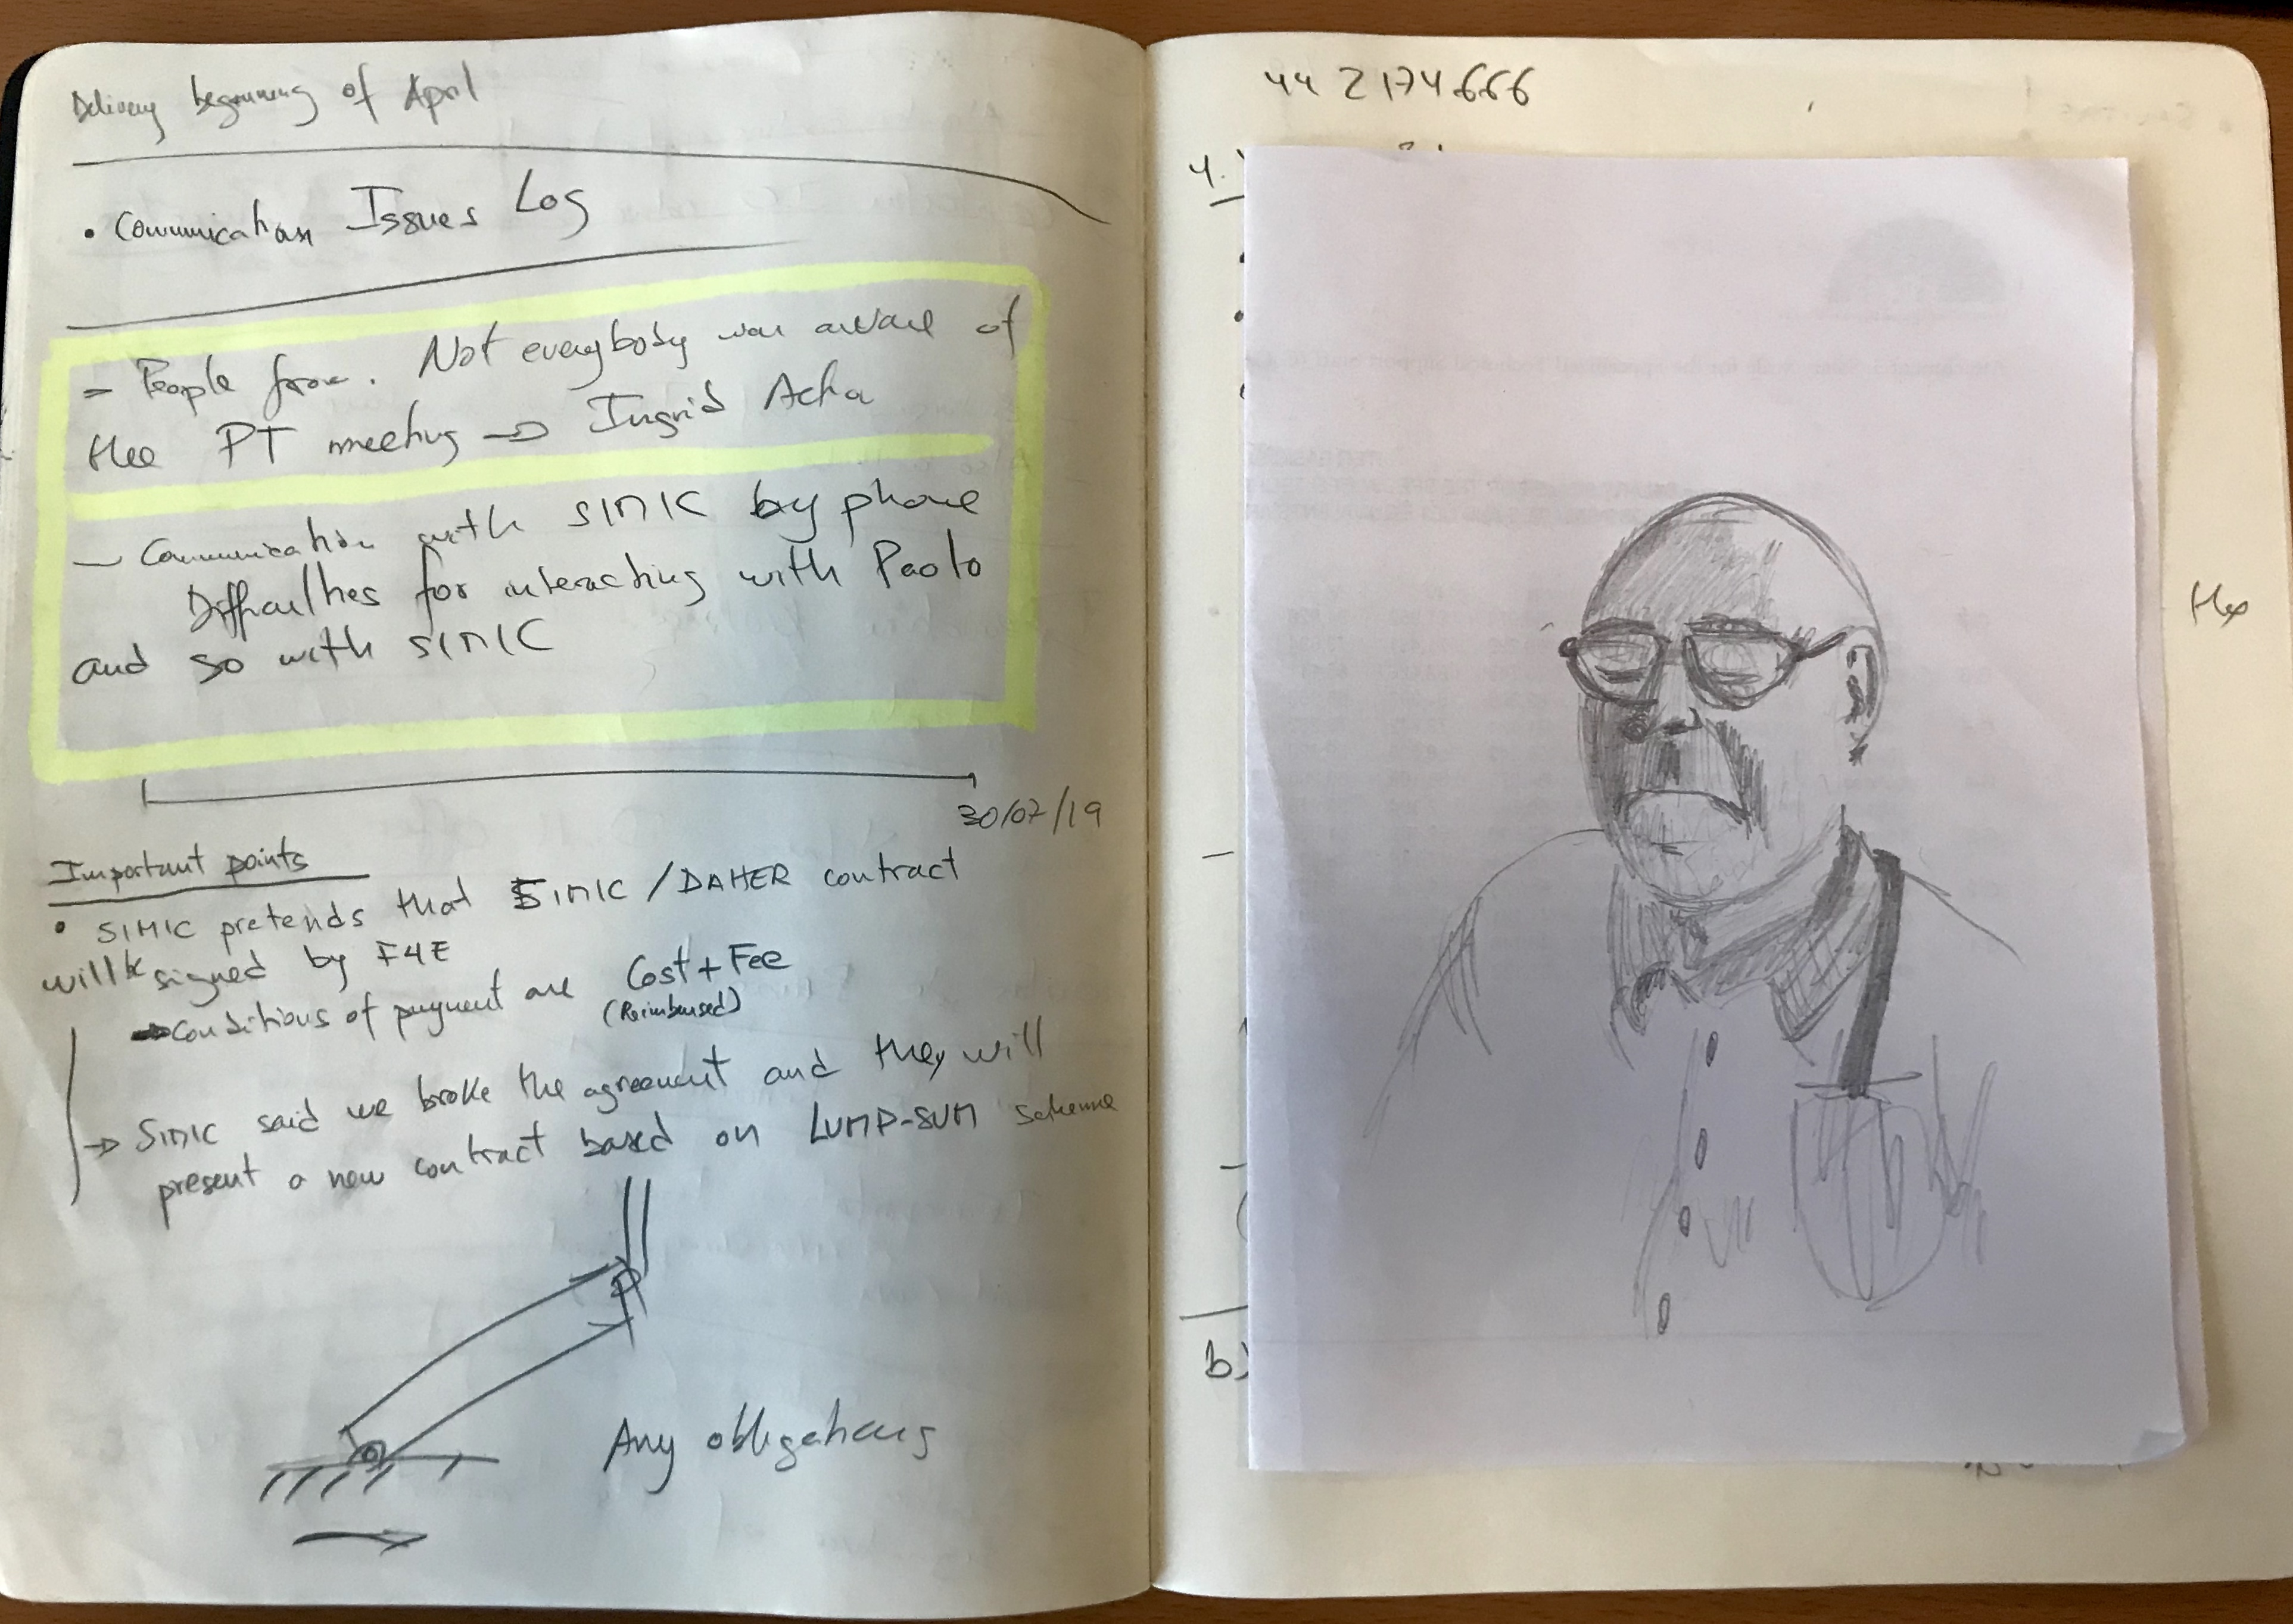 Delivery beginning of April
• Communication Issues Log
- People from. Not everybody was aware of
the PT meeting → Ingrid Acha
- Communication with SIMIC by phone
Difficulties for interacting with Paolo
and so with SIMIC
30/07/19
Important points
• SIMIC pretends that SIMIC/DAHER contract
will be signed by F4E
→ Conditions of payment are Cost+Fee
(Reimbursed)
→ SIMIC said we broke the agreement and they will
present a new contract based on LUMP-SUM scheme
Any obligations
44 2174666
4.
b)